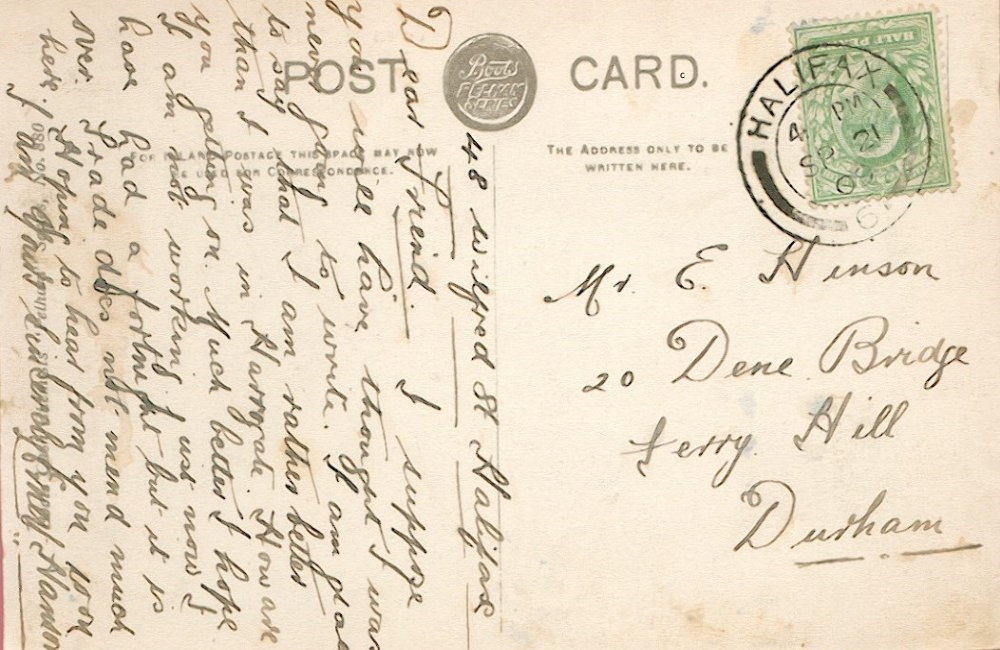 POST CARD.
Boots
PELHAM
SERIES
FOR INLAND POSTAGE THIS SPACE MAY NOW
BE USED FOR CORRESPONDENCE.
THE ADDRESS ONLY TO BE
WRITTEN HERE.
HALF PENNY
HALIFAX
4 PM
SP 21
09
48 Wilfred St Halifax
Dear Freind. I suppose
you will have thought I was
never going to write. I am glad
to say that I am rather better
than I was in Harrogate. How are
you getting on. Much better I hope
I am not working just now I
have had a fortnight but it is
over. Trade does not mend much
here. Hoping to hear from you soon
Yours
Mr. E. Hinson
20 Dene Bridge
Ferry Hill
Durham